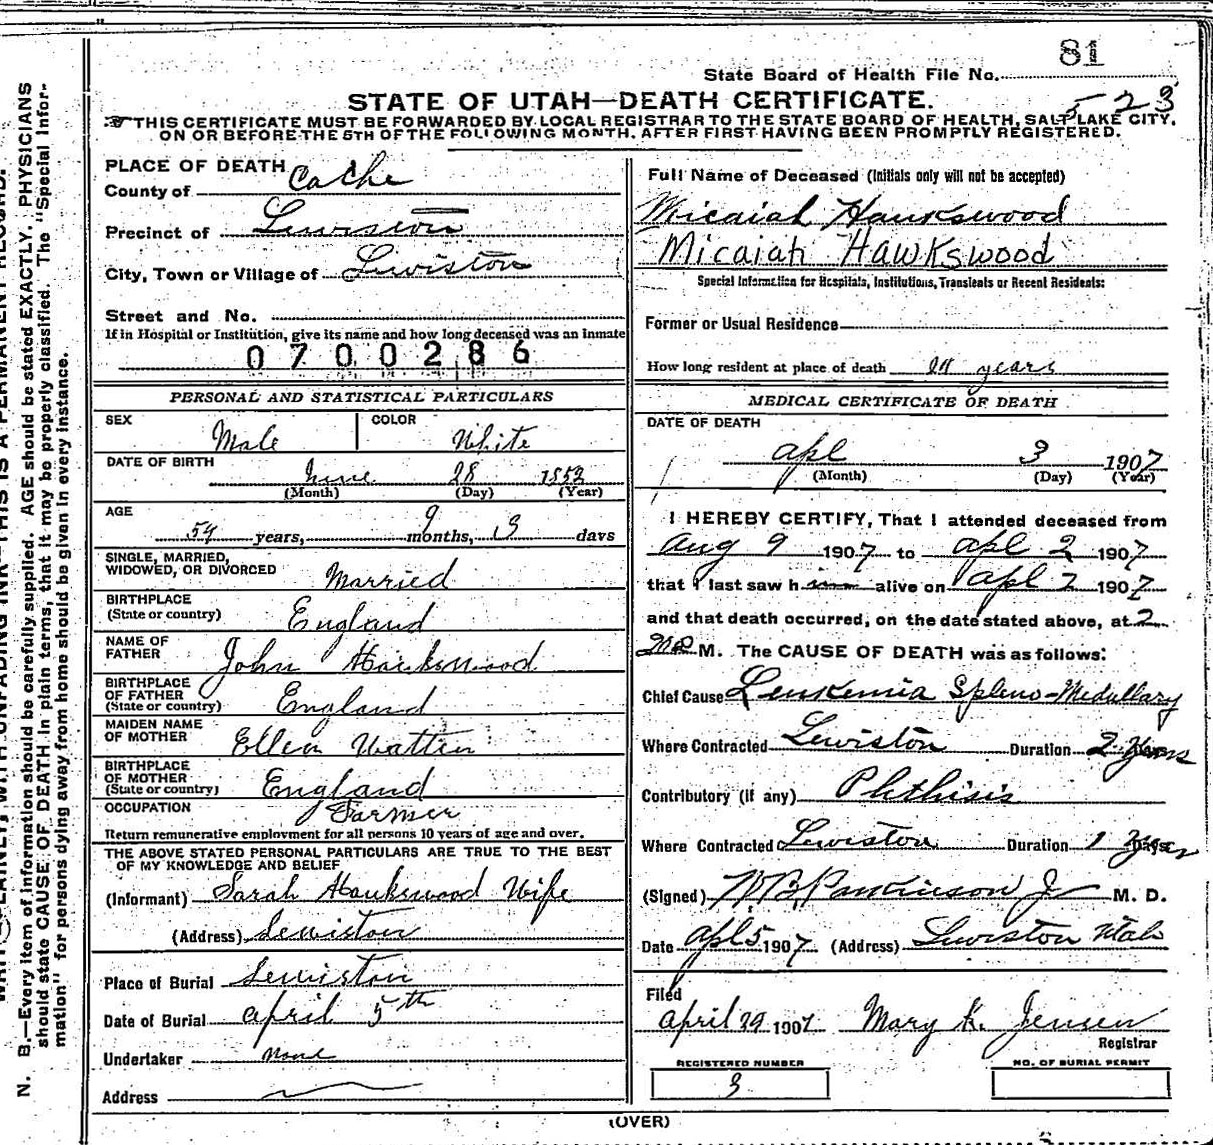 81
State Board of Health File No.
523
STATE OF UTAH—DEATH CERTIFICATE.
THIS CERTIFICATE MUST BE FORWARDED BY LOCAL REGISTRAR TO THE STATE BOARD OF HEALTH, SALT LAKE CITY,
ON OR BEFORE THE 5TH OF THE FOLLOWING MONTH, AFTER FIRST HAVING BEEN PROMPTLY REGISTERED.
PLACE OF DEATH
County of Cache
Precinct of Lewiston
City, Town or Village of Lewiston
Street and No.
If in Hospital or Institution, give its name and how long deceased was an inmate
0700286
PERSONAL AND STATISTICAL PARTICULARS
SEX Male COLOR White
DATE OF BIRTH June 28
(Month) (Day) (Year)
AGE
years, 9 months, days
SINGLE, MARRIED,
WIDOWED, OR DIVORCED Married
BIRTHPLACE
(State or country) England
NAME OF
FATHER John Hawkswood
BIRTHPLACE
OF FATHER
(State or country) England
MAIDEN NAME
OF MOTHER Ellen
BIRTHPLACE
OF MOTHER
(State or country) England
OCCUPATION Farmer
Return remunerative employment for all persons 10 years of age and over.
THE ABOVE STATED PERSONAL PARTICULARS ARE TRUE TO THE BEST
OF MY KNOWLEDGE AND BELIEF
(Informant) Sarah Hawkswood Wife
(Address) Lewiston
Place of Burial Lewiston
Date of Burial april 5th
Undertaker none
Address
Full Name of Deceased (Initials only will not be accepted)
Micaiah Hawkswood
Micaiah Hawkswood
Special Information for Hospitals, Institutions, Transients or Recent Residents:
Former or Usual Residence
How long resident at place of death years
MEDICAL CERTIFICATE OF DEATH
DATE OF DEATH
apl 3 1907
(Month) (Day) (Year)
I HEREBY CERTIFY, That I attended deceased from
Aug 9 1907 to apl 2 1907
that I last saw h im alive on apl 2 1907
and that death occurred, on the date stated above, at 2
M. The CAUSE OF DEATH was as follows:
Chief Cause Leukemia Spleno-Medullary
Where Contracted Lewiston Duration 2 Years
Contributory (if any) Phthisis
Where Contracted Lewiston Duration 1 Year
(Signed) W B Parkinson Jr M. D.
Date apl 5 1907 (Address) Lewiston Utah
Filed
april 29 1907 Mary K. Jensen
Registrar
REGISTERED NUMBER
3
NO. OF BURIAL PERMIT
(OVER)
N. B.—Every item of information should be carefully supplied. AGE should be stated EXACTLY. PHYSICIANS
should state CAUSE OF DEATH in plain terms, that it may be properly classified. The "Special Infor-
mation" for persons dying away from home should be given in every instance.